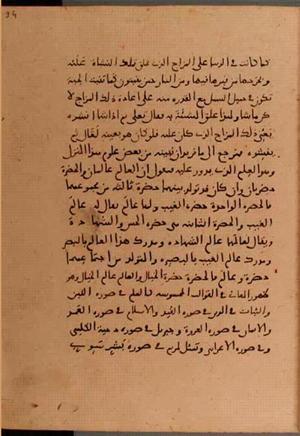 34
كما كانت في الدنيا على المزاج الذي خلق تلك النشاة عليه
ويخرجها من قبرها فيها ومن النار حين ينبتون كما تنبت الحبة
تكون في حميل السيل مع القدره منه على اعادة ذلك المزاج لا
كن ما شا ولهذا علق المشيئة به فقال تعلى ثم اذا شا انشره
يعني ذلك المزاج الذي كان عليه فلو كان هو بعينه لقال ثم
ينشره فلنرجع الى ما نريد ان نبينه من بعض علوم هذا المنزل
وهذا العلم الذي يدور عليه فنقول ان العالم عالمان والحضرة
حضرتان وان كان قد تولد بينهما حضرة ثالثة من مجموعهما
فالحضرة الواحدة حضرة الغيب ولها عالم يقال له عالم
الغيب والحضرة الثانية هي حضرة الحس والشهادة
ويقال لعالمها عالم الشهاده ومدرك هذا العالم بالبصر
ومدرك عالم الغيب بالبصيره والمتولد من اجتماعهما
حضرة وعالم فالحضرة حضرة الخيال والعالم عالم الخيال وهو
ظهور المعاني في القوالب المحسوسه كالعلم في صورة اللبن
والثبات في الدين في صورة القيد والاسلام في صورة العمد
والايمان في صورة العروة وجبريل في صورة دحية الكلبي
وفي صورة الاعرابي وتمثل لمريم في صورة بشر سوي